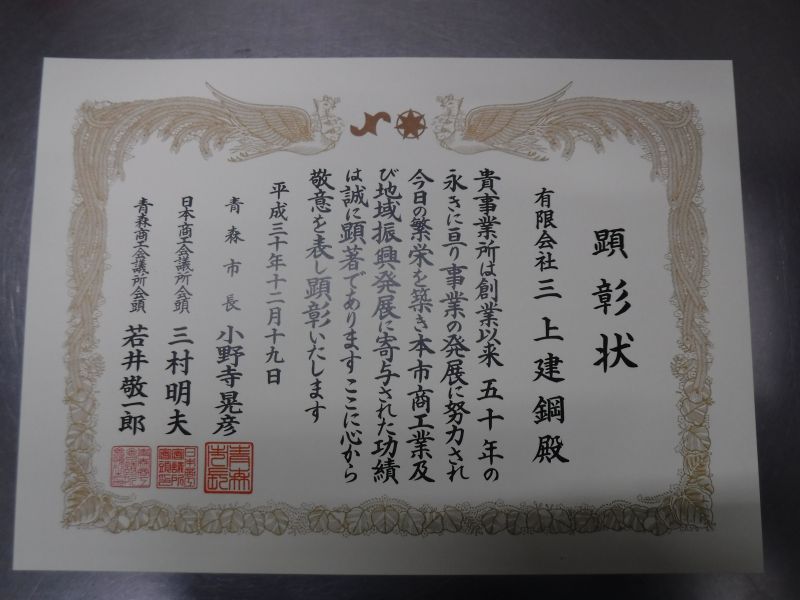 顕彰状
有限会社三上建鋼殿
貴事業所は創業以来五十年の
永きに亘り事業の発展に努力され
今日の繁栄を築き本市商工業及
び地域振興発展に寄与された功績
は誠に顕著でありますここに心から
敬意を表し顕彰いたします
平成三十年十二月十九日
青森市長 小野寺晃彦
青森市長
日本商工会議所会頭 三村明夫
青森商工会議所会頭 若井敬一郎